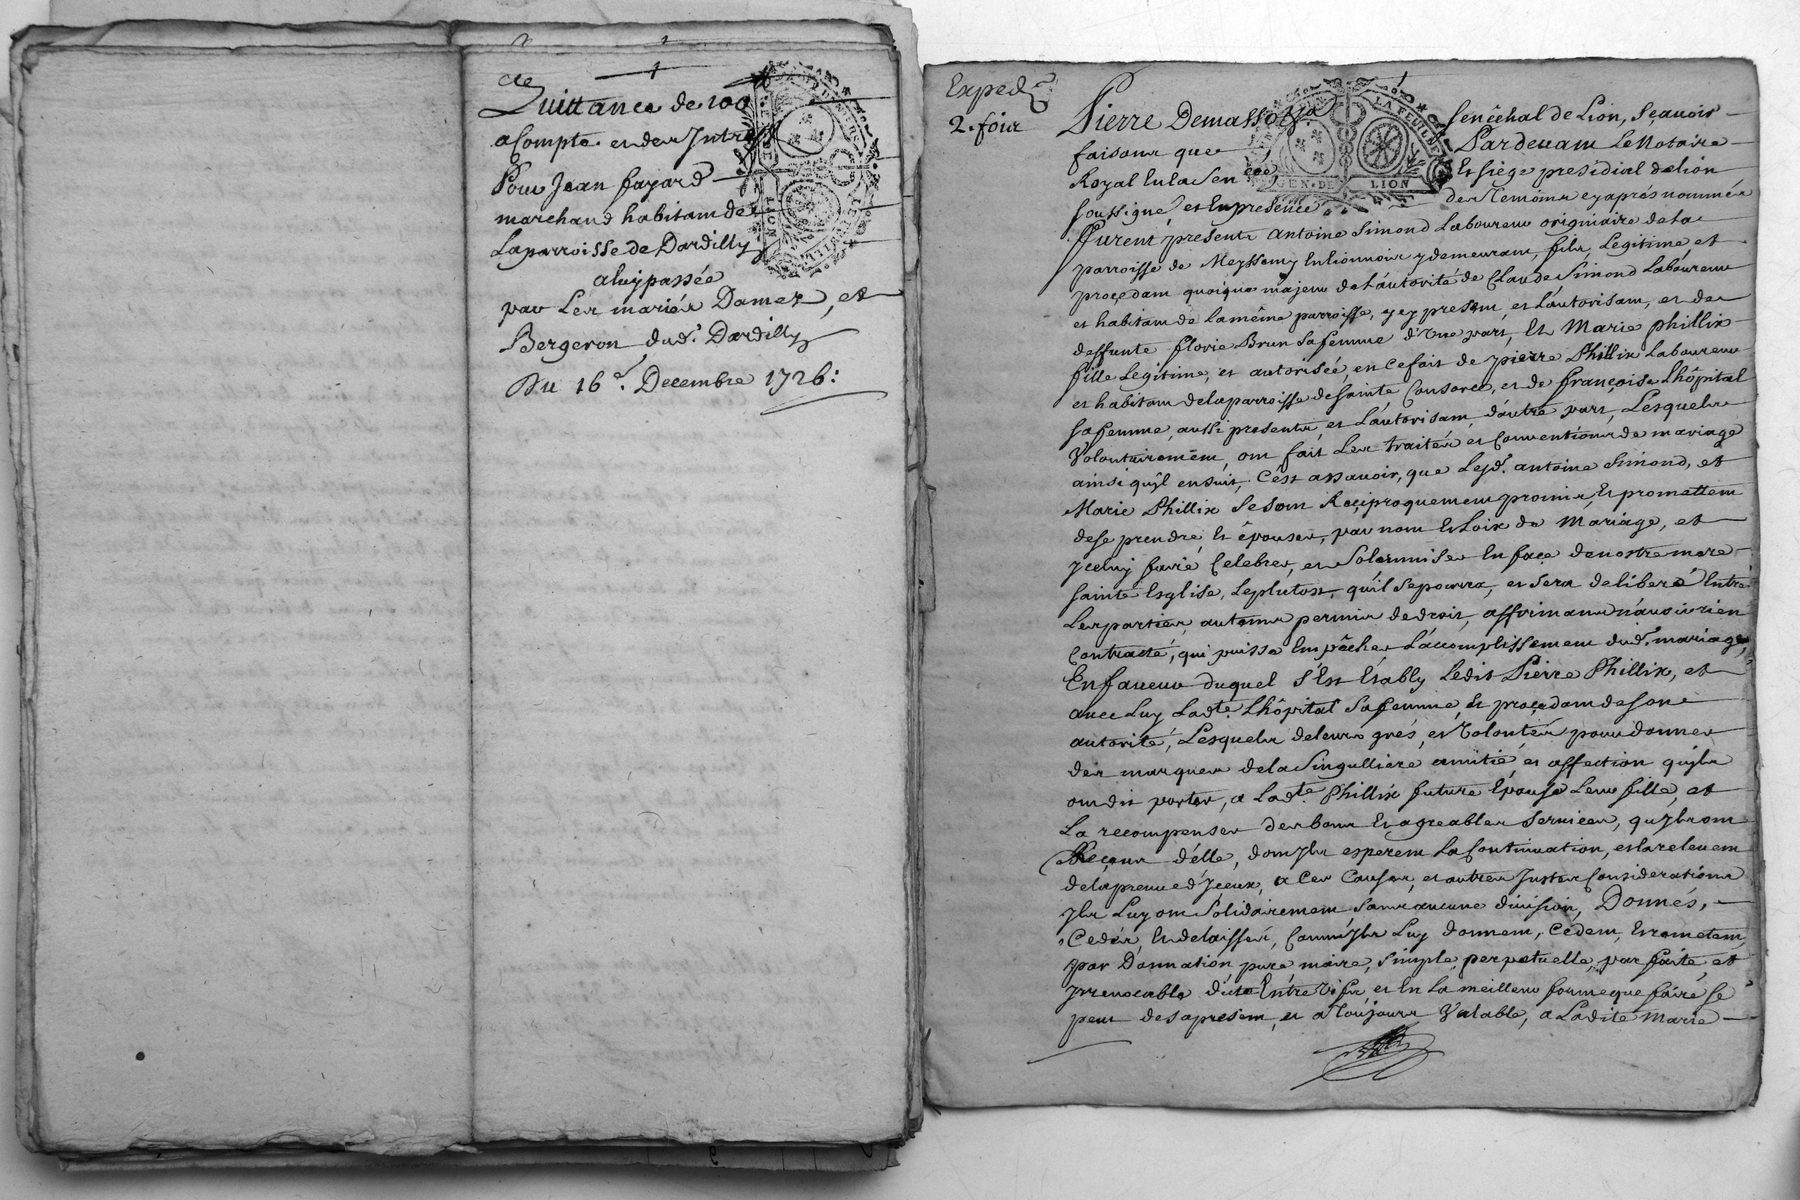 cte
Quittance de 100
a Compte et des Intrestz
Pour Jean fayard
marchand habitant de
La parroisse de Dardilly
a luy passée
par Les mariés Damez, et
Bergeron dud.t Dardilly
Du 16e. Decembre 1726:
GEN. DE LION
Exped.ée
2. foix
Pierre Demasso
Senêchal de Lion, Sçavoir
faisons que
Pardevant Le Notaire
Royal En la Sen.cée
Et siège presidial de Lion
soussigné, et En presence
des Temoins cy après nommés
LA FEUILLE
GEN. DE LION
furent presents Antoine Simond Laboureur originaire de la
parroisse de Meyssemy En lionnois y demeurant, fils Legitime et
proçedant quoique majeur de L'autorité de Claude Simond Laboureur
et habitant de La même parroisse, y cy present, et L'autorisant, et de
deffunte florie Brun sa femme d'Une part, Et Marie phillix
fille Legitime, et autorisée, en ce fait de pierre Phillix Laboureur
et habitant de la parroisse de sainte Consorce, et de françoise Lhôpital
sa femme, aussi presents, et L'autorisant, d'autre part, Lesquels
Volontairement, ont fait Les traités et Conventions de mariage
ainsi qu'yl ensuit, C'est assavoir, que Led.t antoine Simond, et
Marie Phillix se sont Reçiproquement promis, Et promettent
de se prendre, Et épouser, par nom Et Loix de Mariage, et
yceluy faire Celebrer, et Solemniser En façe de nostre mere
sainte Esglise, Le plutost, qu'il se pourra, et sera deliberé Entre
Les parties, autems permis de droit, affirmant n'avoir rien
Contracté, qui puisse Empêcher L'accomplissement dud.t mariage,
En faveur duquel s'Est Etably Ledit Pierre Phillix, et
avec Luy Lad.te Lhôpital sa femme, Et proçedant de son
autorité, Lesquels de leurs grés, et Volontés pour donner
des marques de la Singulliere amitié, et affection qu'yls
ont dit porter, a Lad.te Phillix future Epouse Leur fille, et
La recompenser des bons Et agreables services, qu'yls ont
Reçeus d'elle, dont yls esperent La Continuation, et la relevent
de la preuve d'yceux, a Ces Causes, et autres Justes Considerations
yls Luy ont Solidairement, sans aucune division, Donnés,
Cedés, Et delaissés, Comme yls Luy donnent, Cédent, Et remetent,
par Donnation pure, mère, simple, perpetuelle, parfaite, et
yrrevocable dite Entre Vifs, et En La meilleur forme que faire se
peut des a present, et a Toujours Valable, a Ladite Marie